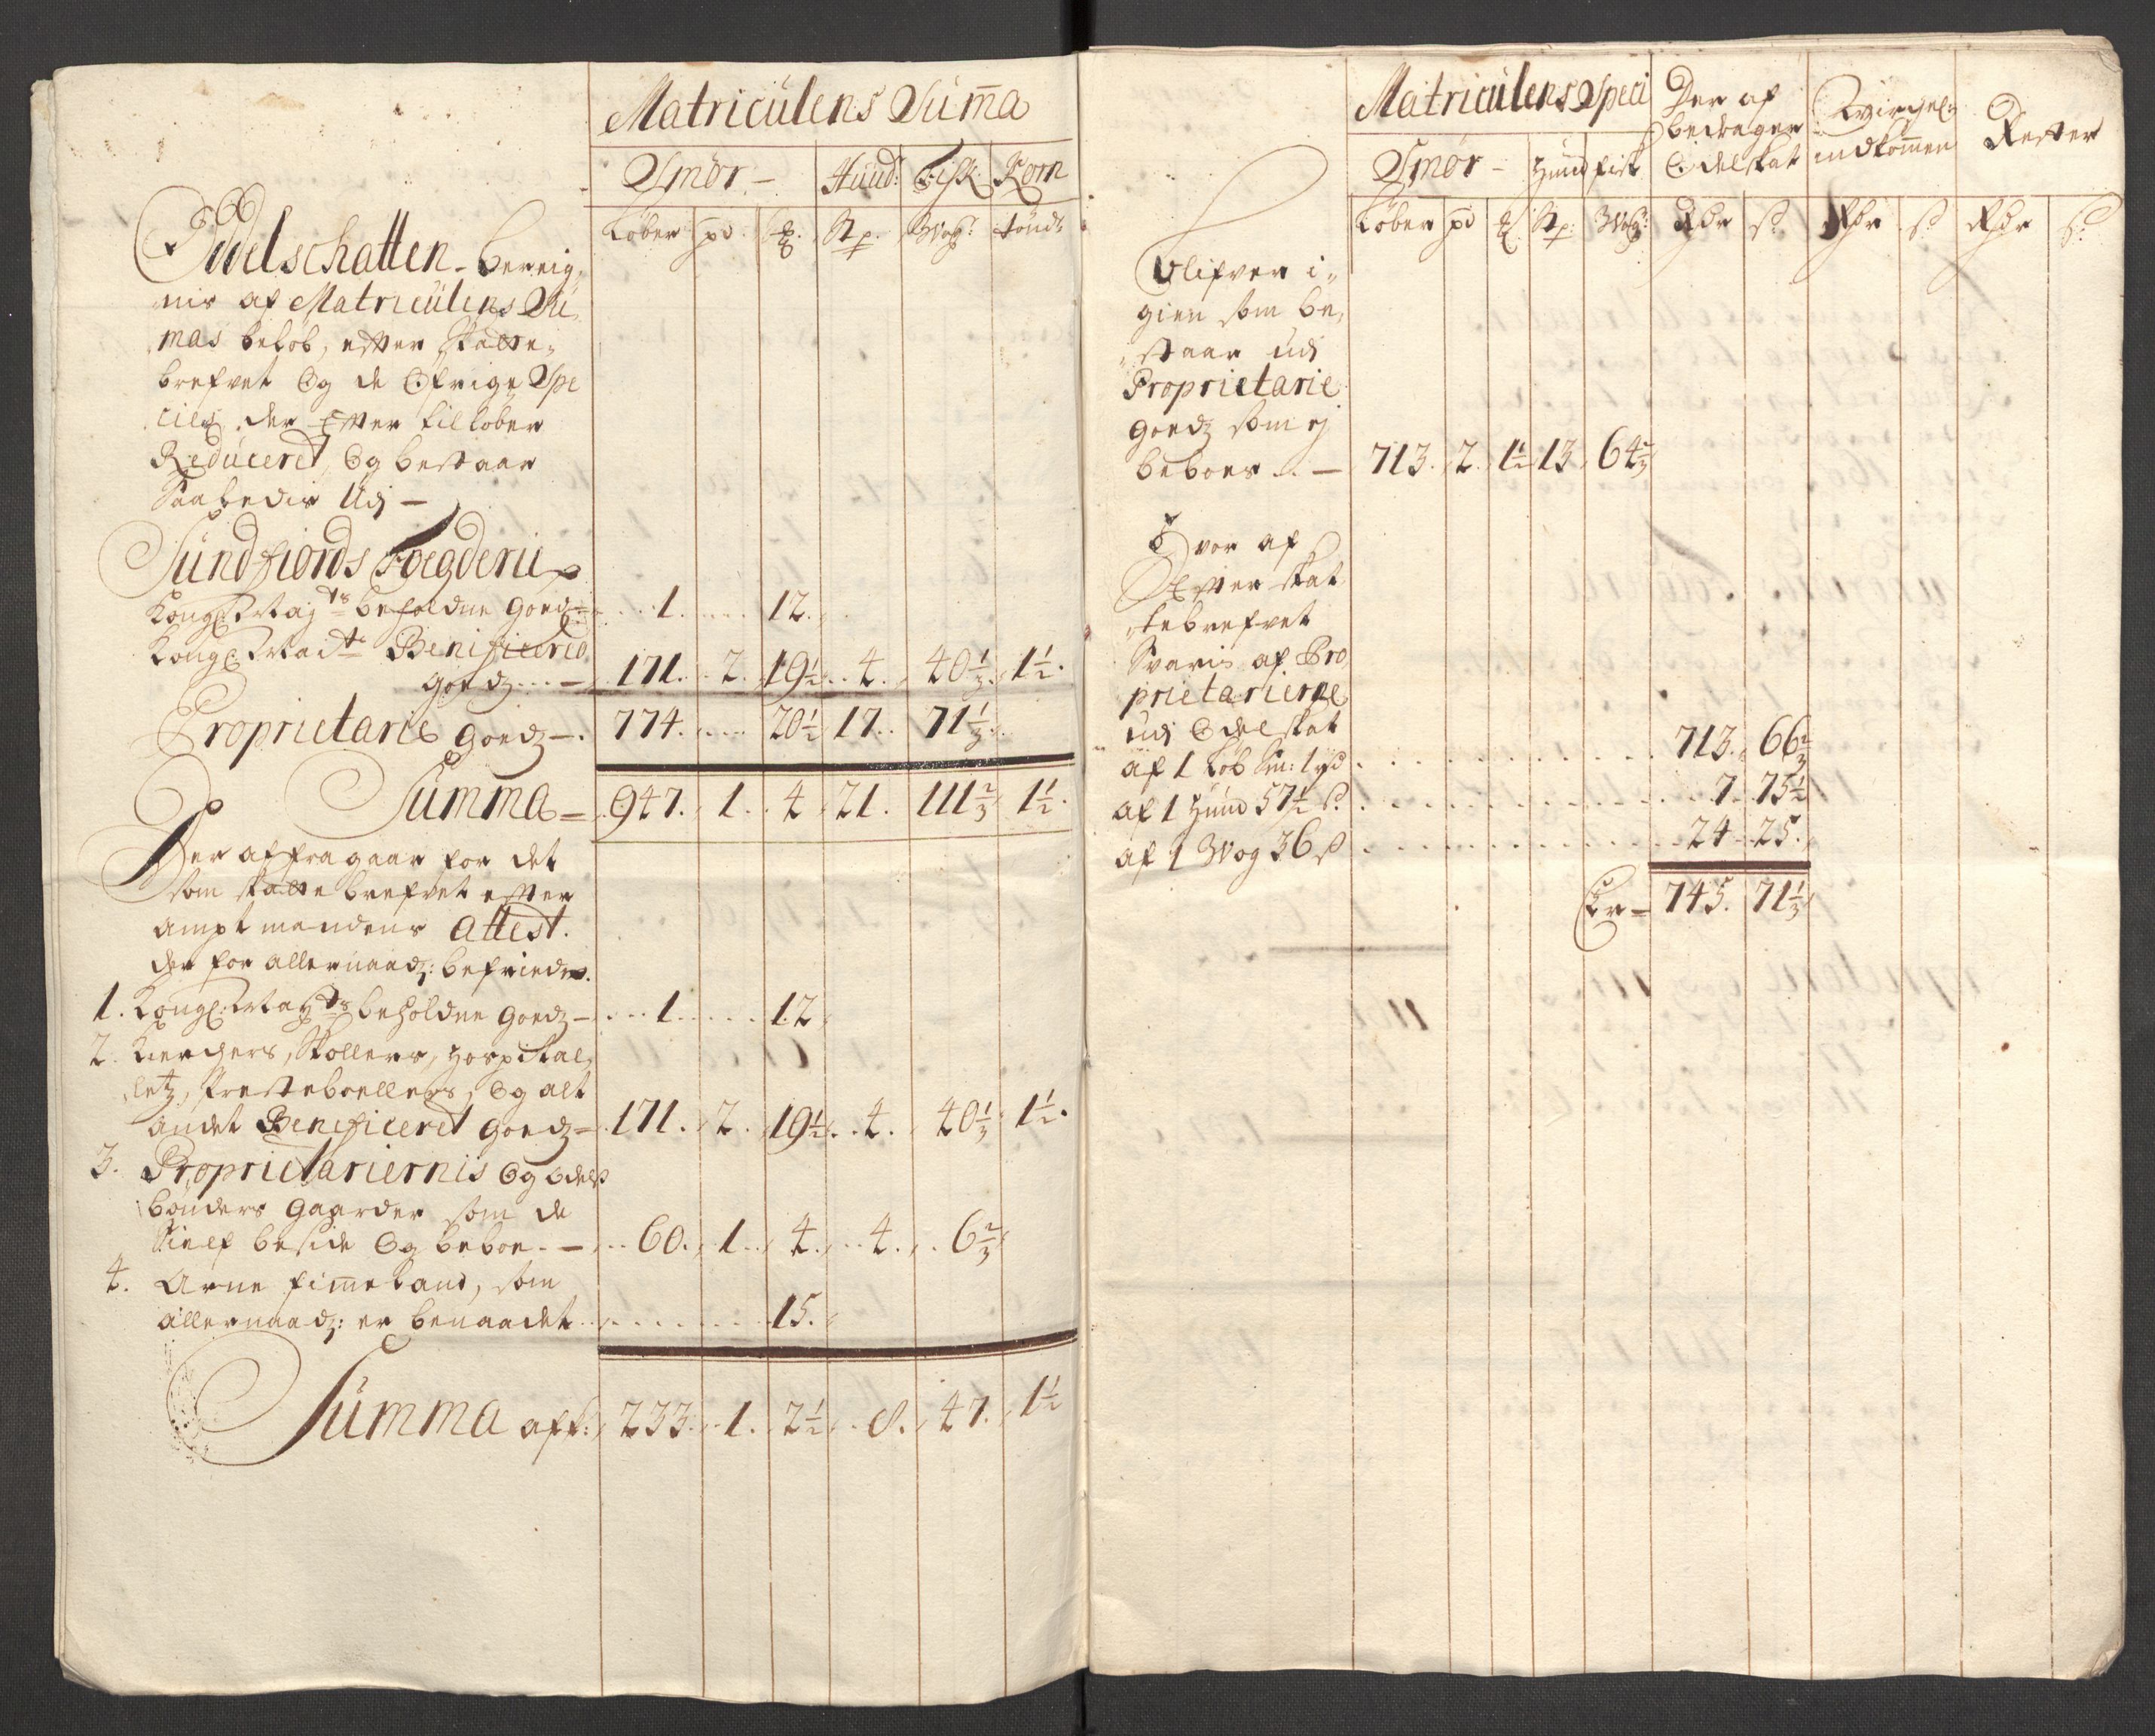 Matriculens Sum̄a
Smör - Huud: Fisk Korn
Løber pd. ℔. Stp. Wog: tønd:
Odelschatten bereig,
nis af Matriculens Su,
mas beløb, efter Skatte,
brefvet Og de Øfrige Spe
cies, der Efter til løber
Reduceret, Og bestaar
Saaledis Udj -
Sundfiords Fogderie
Kongl: Maÿts beholdne goedz - 1. 12.
Kongl: Maits Benificered
goedz - 171. 2. 19½. 4. 40⅓. 1½.
Proprietarie goedz -. 774. 20½ 17. 71⅓.
Summa - 947. 1. 4 21. 111⅔ 1½.
Der affragaar for det
som skatte brefvet efter
amptmandens attest.
der for allernaadg: befriedes.
1. Kongl: Maÿts beholdne goedz - 1. 12
2. Kierchers, Skollers, Hospital,
letz, Præsteboellers, Og alt
andet Beneficeret goedz - 171. 2. 19½. 4. 40⅓. 1½.
3. Proprietariernis Og odels
bønders gaarder som de
Sielf beside Og beboe. - 60. 1. 4. 4. 6⅔
4. Arne fim̄eland, som
allernaadg: er benaadet 15.
Summa aff: 233. 1. 2½ 8. 47. 1½
Matriculens Speci
Der af bedrager Odelskat
indkom̄en
Rester
Smør - Huud fisk
Løber pd ℔ Stp: Wog: Rdr s. Rdr s. Rdr s.
Blifver i,
gien som be,
staar udj
Proprietarie
goedz som ej
beboes - 713. 2. 1½ 13 64⅔
Hvor af
Efter skat
tebrefvet
Svaris af Pro
prietarierne
udj Odelskat
af 1 Løb Sm: 1 rd 713. 66⅔
af 1 Huud 57½ s. 7. 75½
af 1 Wog 36 s 24. 25.
Er - 745. 71⅓